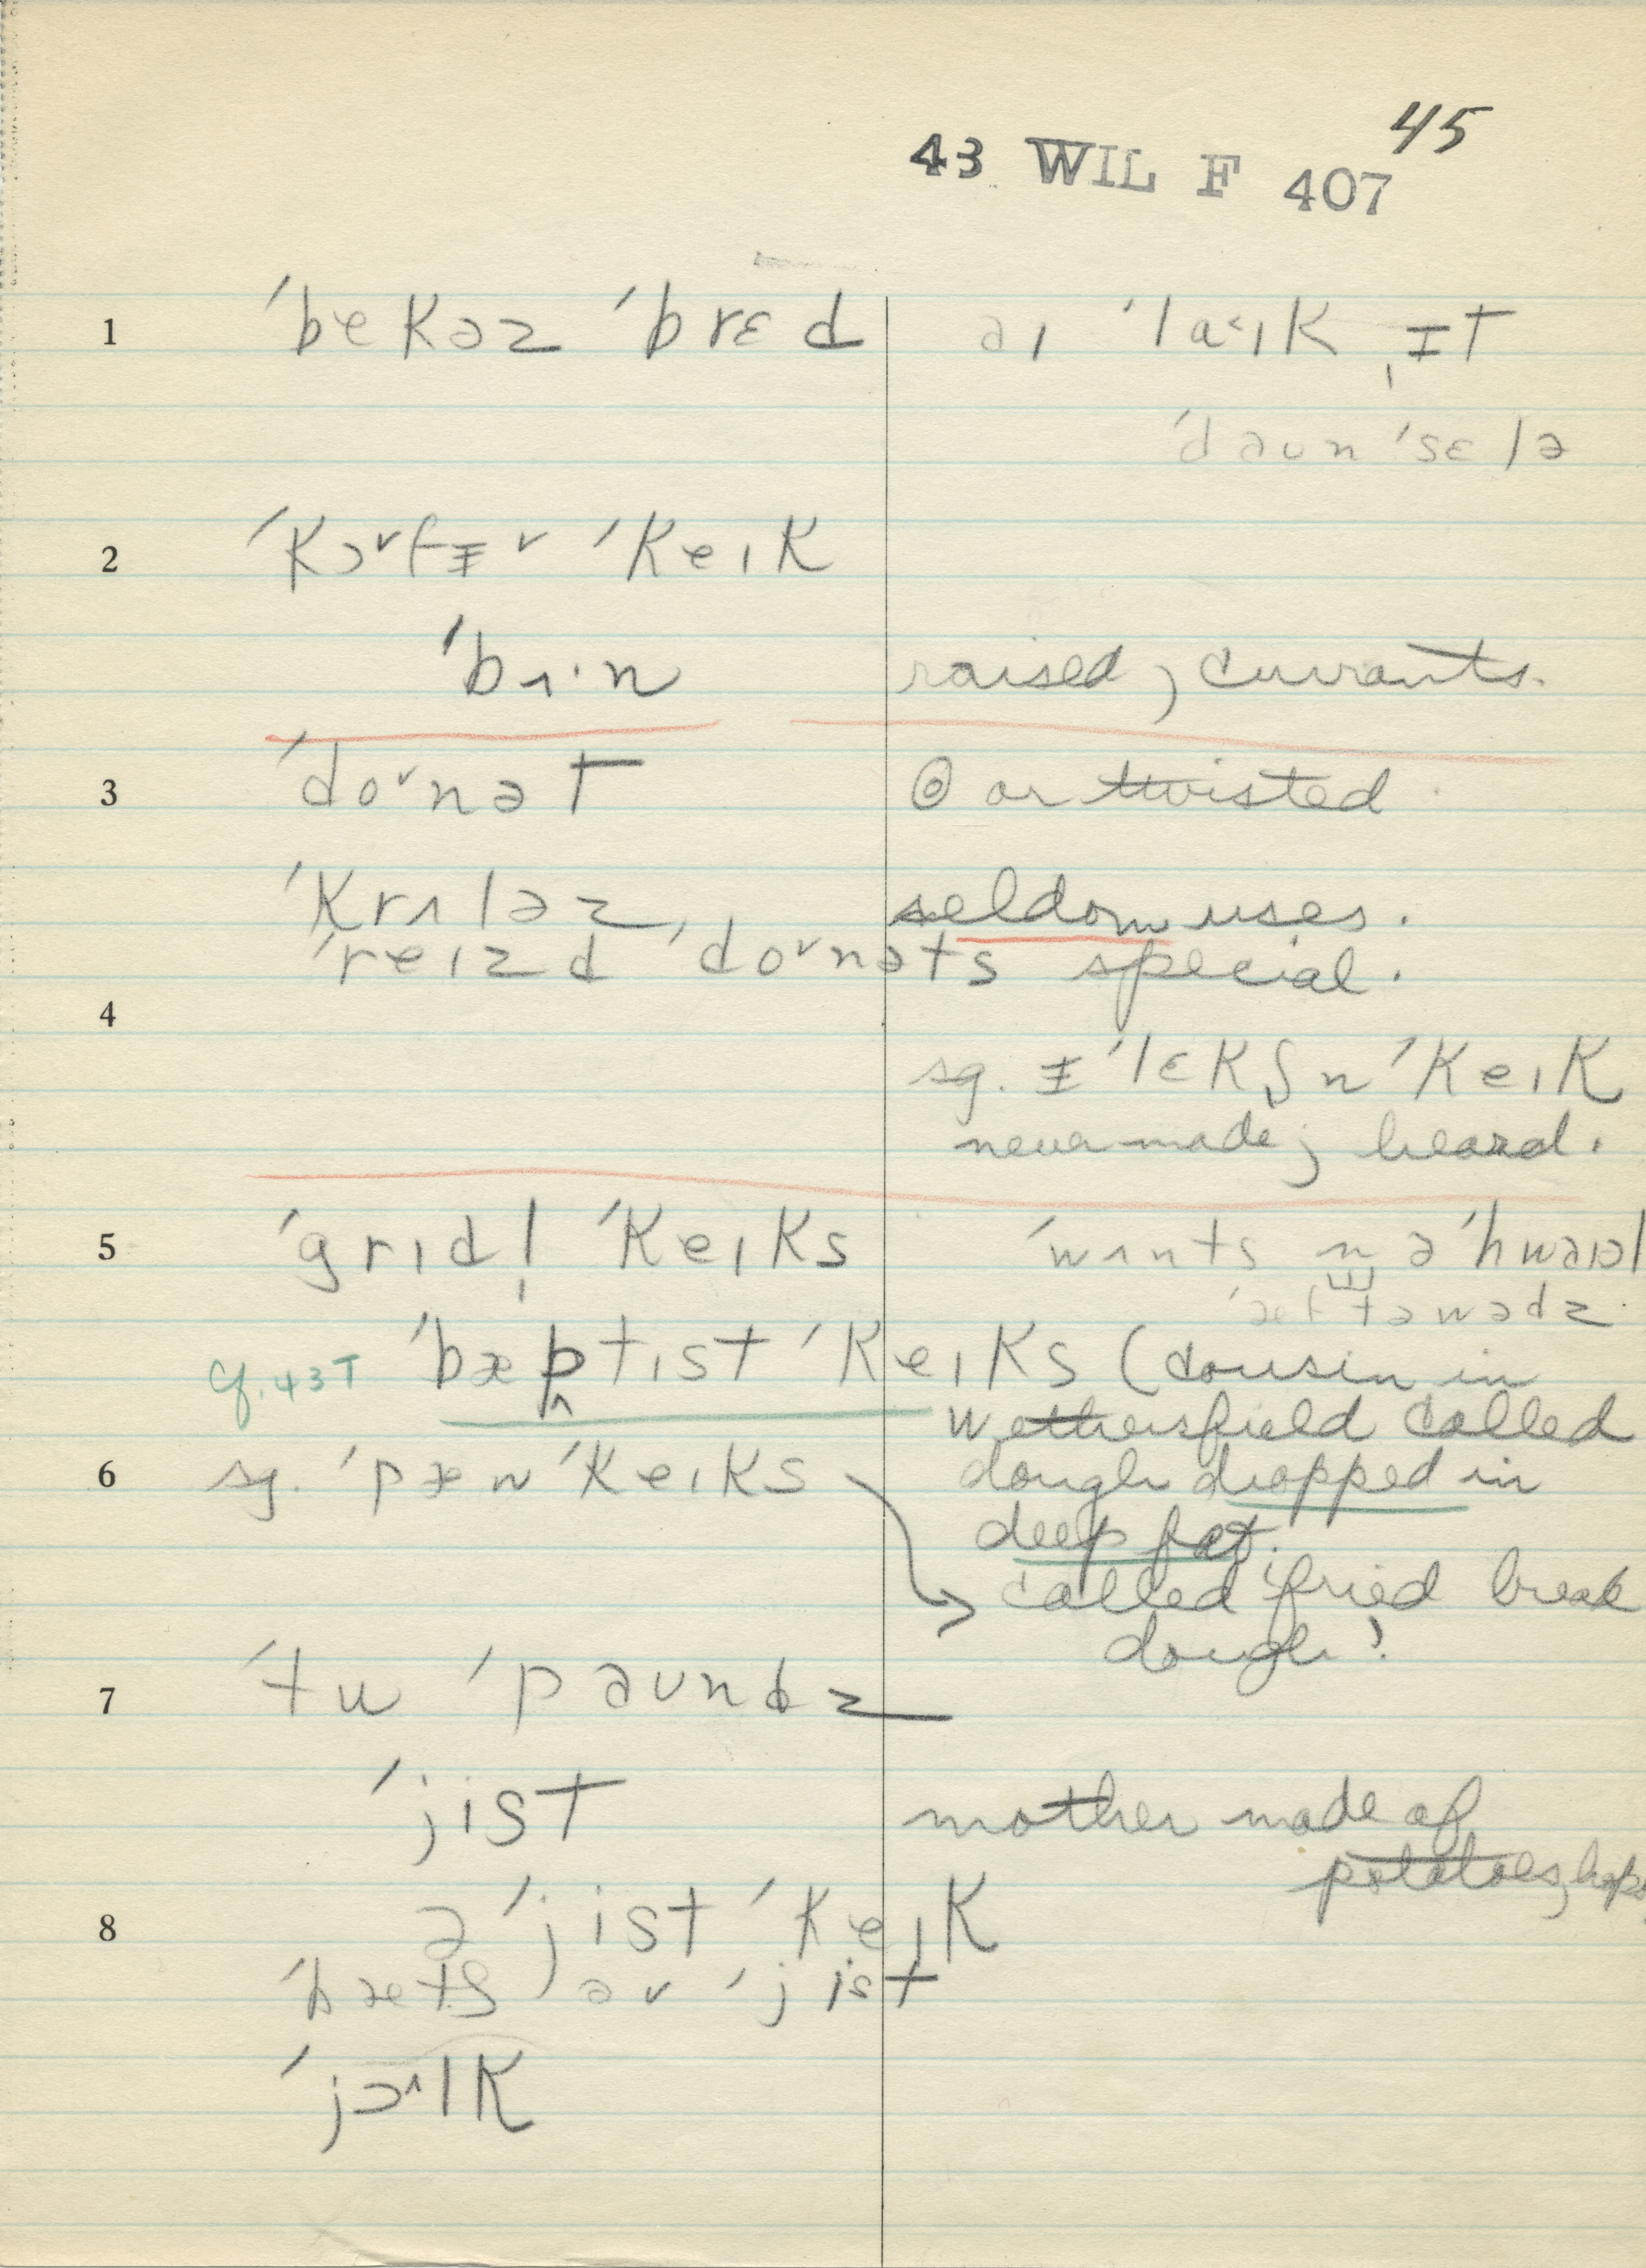 45
43 WIL F 407
1 ˈbekəz ˈbrɛd əɪ ˈla˂ɪk ˌɪt
ˈdəʊn ˈsɛlə
2 ˈkɔ˅fɨ˅ ˈkeɪk
ˈbɪ·n raised; currants.
3 ˈdo˅nət ⊚ or twisted.
ˈkrʌləz, seldom uses.
ˈreɪzd ˈdo˅nəts special.
4
sg. ɨˈlɛkʃn̩ ˈkeɪk
never made; heard.
5 ˈgrɪdl̩ ˈkeɪks ˈwʌnts n̪ əˈhwəɪəl
ˈæftəwədz
cf. 43T ˈbæptɪst ˈkeɪks (cousin in
Wethersfield called
6 sg. ˈpænˈkeɪks dough dropped in
deep fat.
called 'fried bread
dough'
7 ˈtu ˈpəʊndz
ˈjist mother made of
potatoes, hops
8 ə ˈjist ˈkeɪk
ˈbætʃ əv ˈjist
ˈjɔ^lk